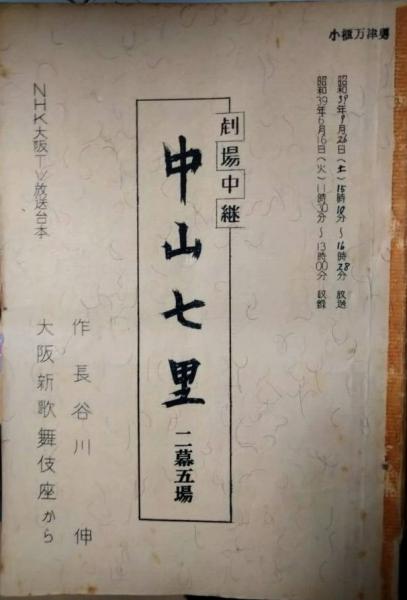 小種万津男
昭和39年9月26日(土)15時10分～16時28分 放送
昭和39年6月16日(火)11時30分～13時00分 収録
劇場中継
中山七里 二幕五場
作 長谷川 伸
大阪新歌舞伎座から
NHK大阪TV放送台本